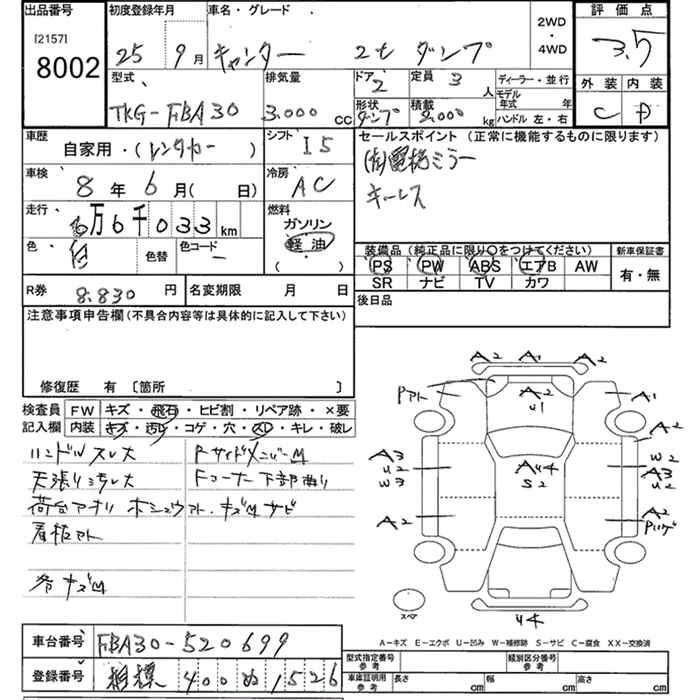 出品番号 初度登録年月 車名・グレード 評価点
[2157] 8002 25 9月 キャンター 2t ダンプ 2WD・4WD 3.5
型式 排気量 ドア 2 定員 3 人 ディーラー・並行 外装 内装
TKG-FBA30 3.000 cc 形状 ダンプ 積載 2.000 kg モデル年式 年 ハンドル 左・右 C D
車歴 シフト セールスポイント (正常に機能するものに限ります)
自家用・(レンタカー) I5
車検 8年6月(日) 冷房 AC キーレス
走行 万6千033km 燃料 ガソリン 軽油 ( )
色 白 色替 色コード − 装備品 (純正品に限り○をつけてください) 新車保証書
PS PW ABS エアB AW 有・無
SR ナビ TV カワ
R券 8.830円 名変期限 月 日 後日品
注意事項申告欄(不具合内容等は具体的に記入して下さい)
修復歴 有 〔箇所 〕
検査員記入欄 FW キズ・飛石・ヒビ割・リペア跡・×要
内装 キズ・汚レ・コゲ・穴・スレ・キレ・破レ
ハンドルスレ大 Rサイドメンバーm
天張り汚レ大 Fコーナー下部曲り
荷台アオリ ホシュウアト・キズm サビ
看板アト
各キズm
A2 A1 A2
Pアト A2 U1 A1
A3 U2 W3 A2 A44 S2 A2 W2 A3 U2 A2
スペア U4
A−キズ E−エクボ U−凹み W−補修跡 S−サビ C−腐食 XX−交換済
車台番号 FBA30-520699 型式指定番号 参考 類別区分番号 参考
登録番号 相模 400 ぬ 1526 車庫証明用 参考 長さ cm 幅 cm 高さ cm